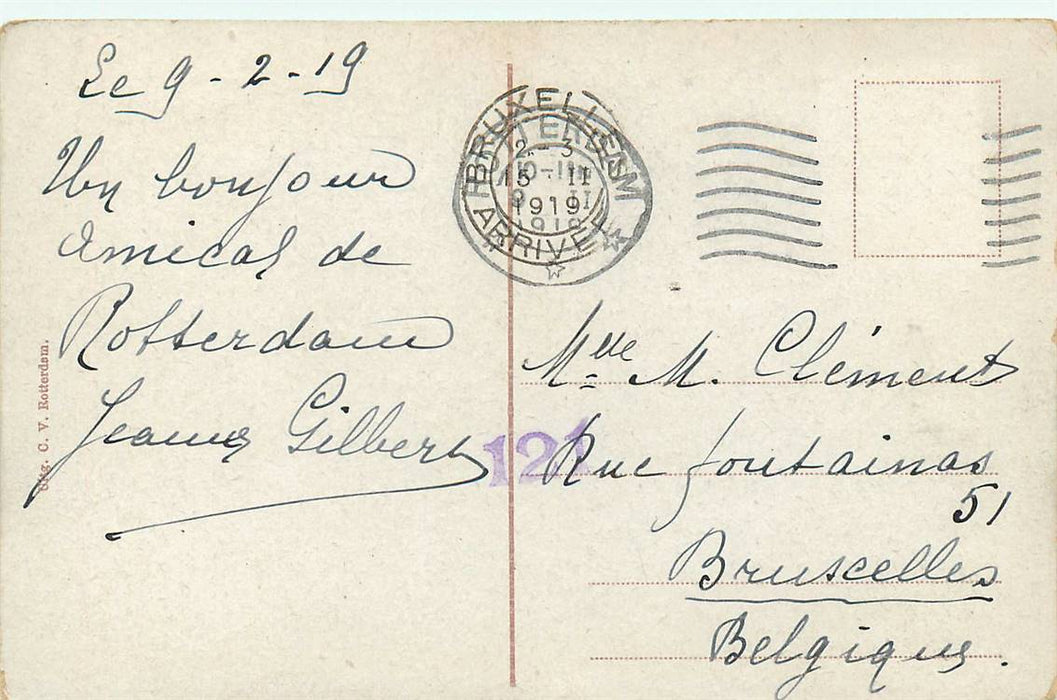 Le 9 - 2 - 19
Un bonjour
amical de
Rotterdam
Jeanne Gilbert
Uitg. C. V. Rotterdam.
BRUXELLES
2 - 3
15 - II
1919
ARRIVEE
121
Mlle M. Clément
Rue fontainas
51
Bruxcelles
Belgique.